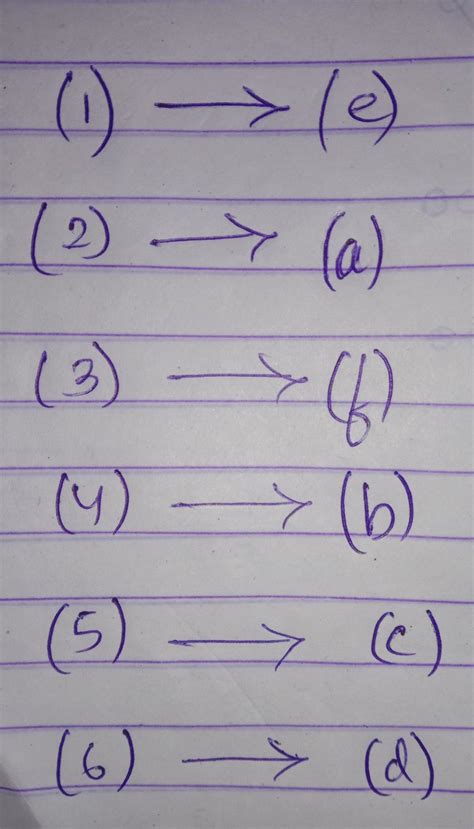 (1) → (e)
(2) → (a)
(3) → (f)
(4) → (b)
(5) → (c)
(6) → (d)